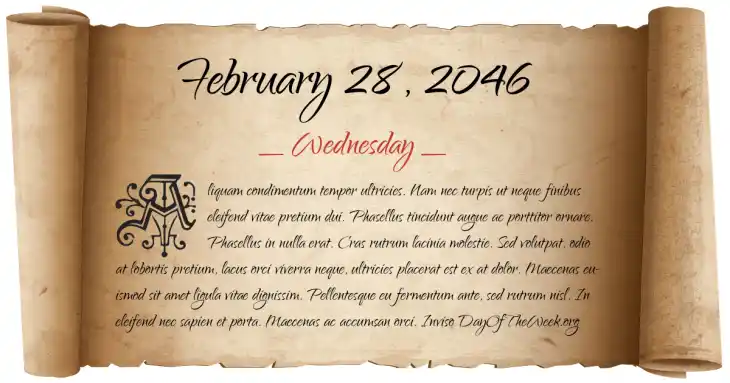 February 28, 2046
_ Wednesday _
Aliquam condimentum tempor ultricies. Nam nec turpis ut neque finibus
eleifend vitae pretium dui. Phasellus tincidunt augue ac porttitor ornare.
Phasellus in nulla erat. Cras rutrum lacinia molestie. Sed volutpat, odio
at lobortis pretium, lacus orci viverra neque, ultricies placerat est ex at dolor. Maecenas eu-
ismod sit amet ligula vitae dignissim. Pellentesque eu fermentum ante, sed rutrum nisl. In
eleifend nec sapien et porta. Maecenas ac accumsan orci. Inviso DayOfTheWeek.org